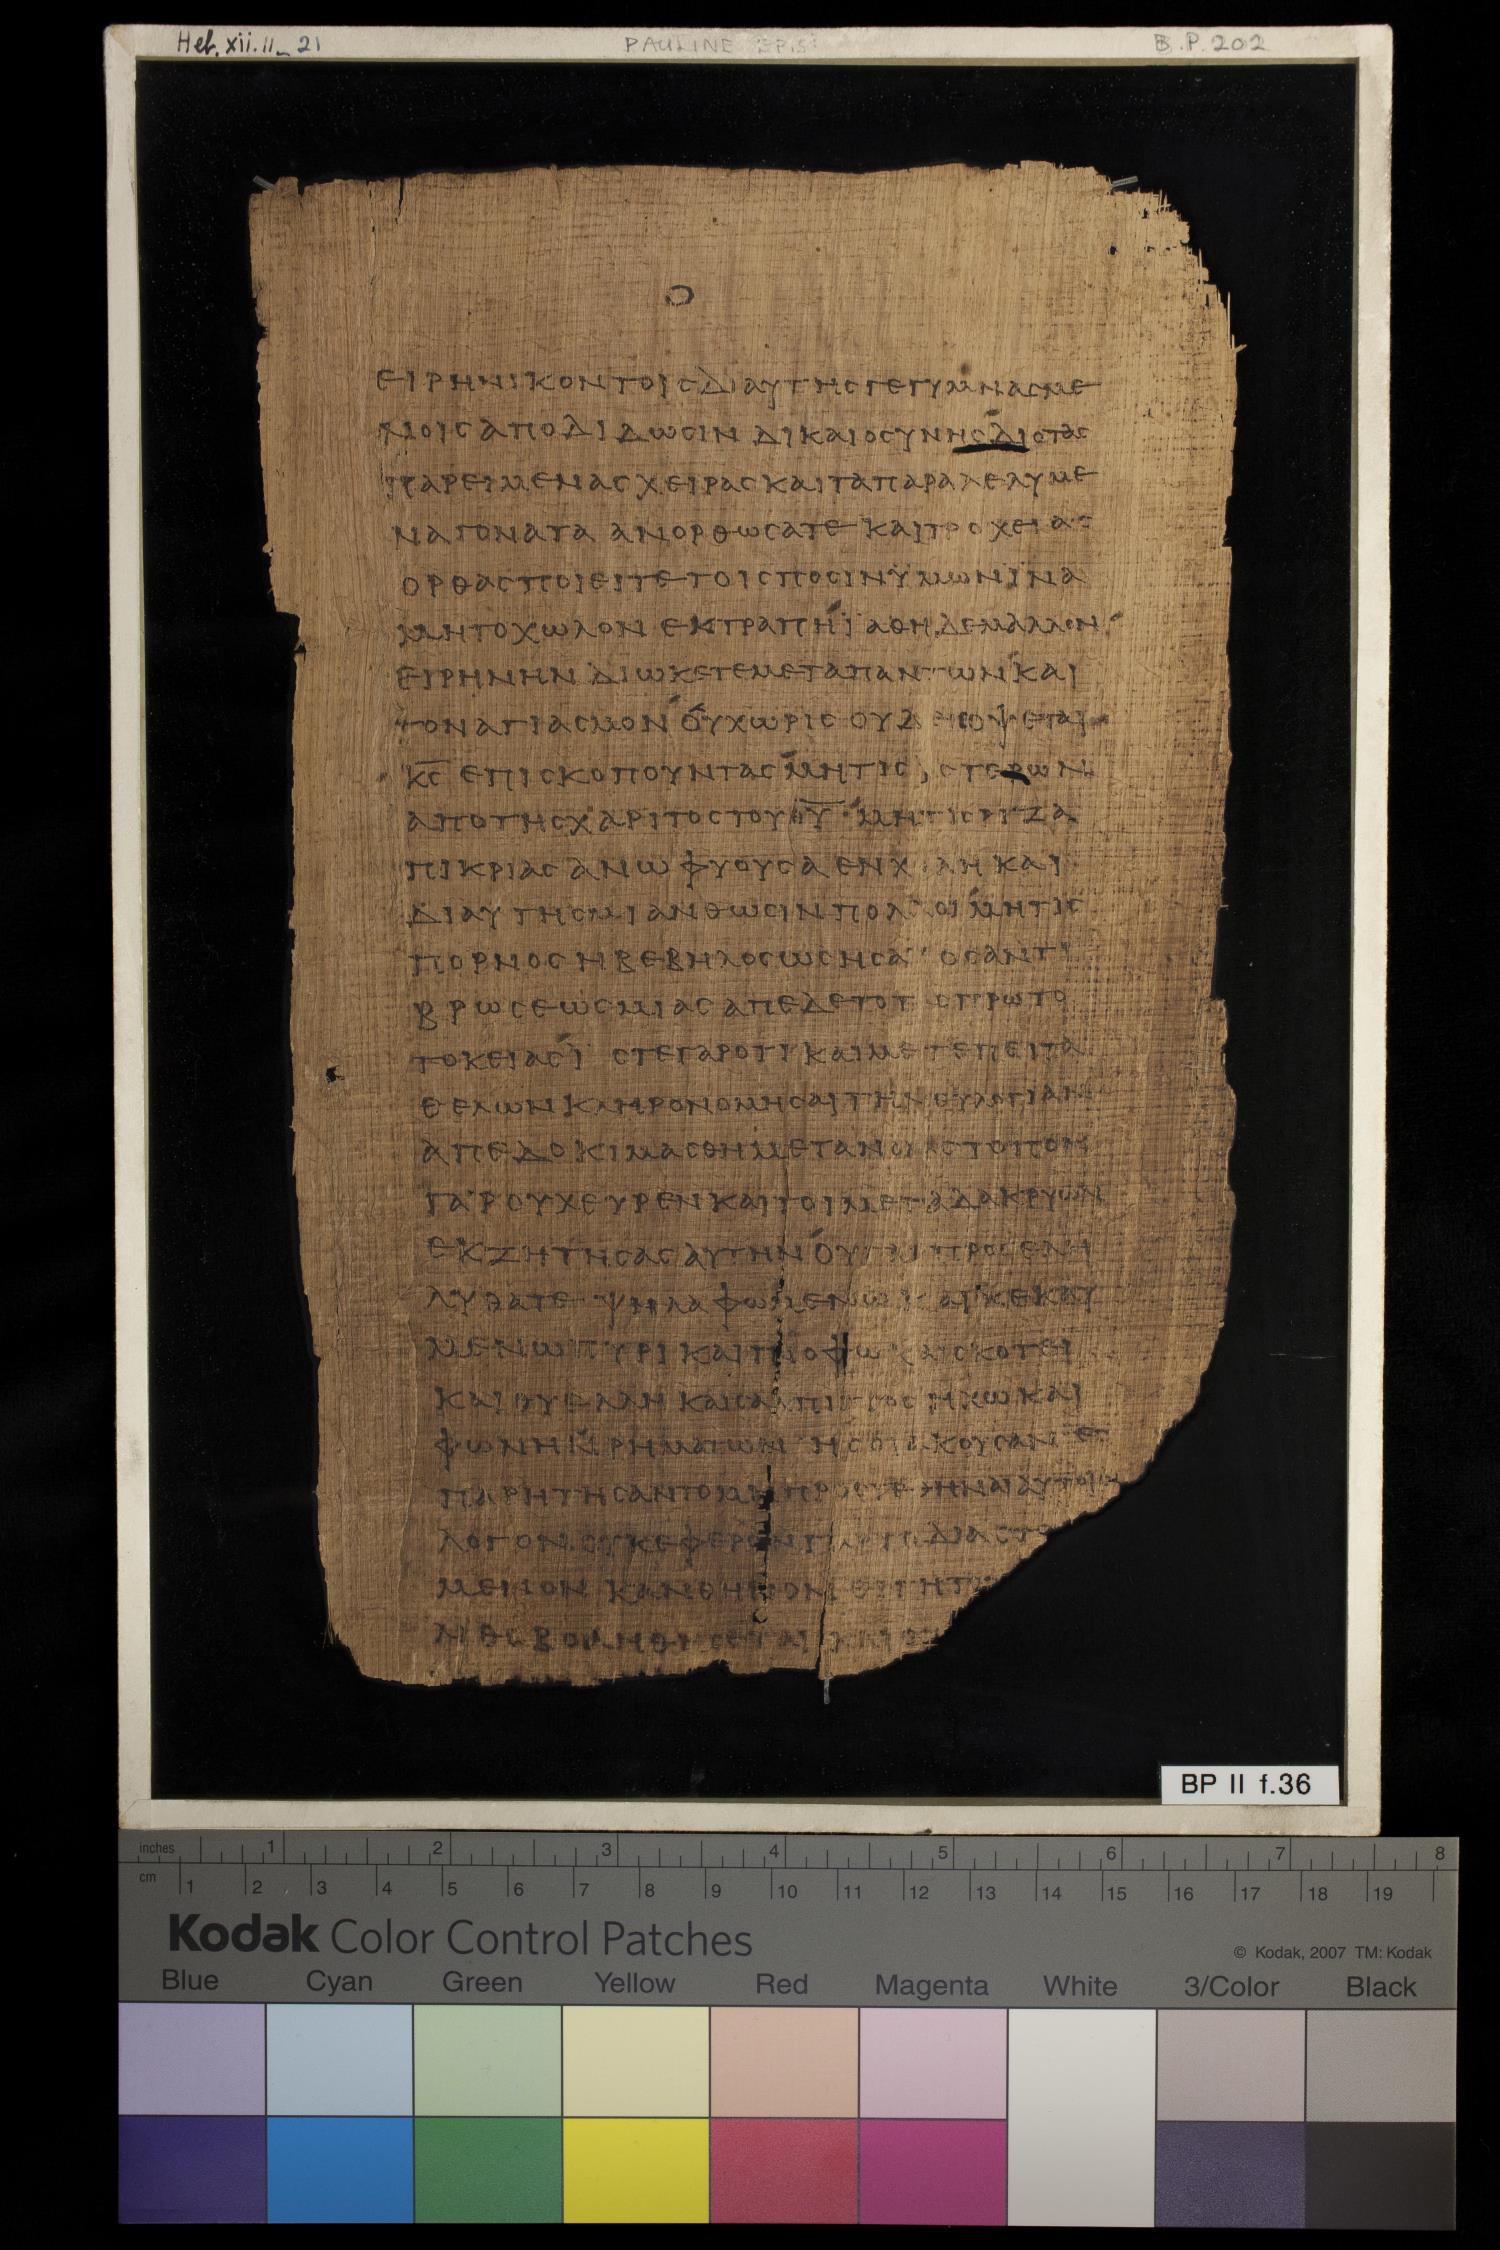 Heb. xii. 11 - 21
PAULINE EPIS
B.P. 202
Ο
ΕΙΡΗΝΙΚΟΝΤΟΙCΔΙΑΥΤΗCΓΕΓΥΜΝΑCΜΕ
ΝΟΙC ΑΠΟΔΙΔΩCΙΝ ΔΙΚΑΙΟCΥΝΗC ΔΙΟΤΑC
ΠΑΡΕΙΜΕΝΑC ΧΕΙΡΑC ΚΑΙ ΤΑ ΠΑΡΑΛΕΛΥΜΕ
ΝΑ ΓΟΝΑΤΑ ΑΝΟΡΘΩCΑΤΕ ΚΑΙ ΤΡΟΧΕΙΑC
ΟΡΘΑC ΠΟΙΕΙΤΕ ΤΟΙC ΠΟCΙΝ ΫΜΩΝ ΪΝΑ
ΜΗ ΤΟ ΧΩΛΟΝ ΕΚΤΡΑΠΗ ΪΑΘΗ ΔΕ ΜΑΛΛΟΝ
ΕΙΡΗΝΗΝ ΔΙΩΚΕΤΕ ΜΕΤΑ ΠΑΝΤΩΝ ΚΑΙ
ΤΟΝ ΑΓΙΑCΜΟΝ ΟΥ ΧΩΡΙC ΟΥΔΕΙC ΟΨΕΤΑΙ
Κ̅C̅ ΕΠΙCΚΟΠΟΥΝΤΑC ΜΗ ΤΙC ΥCΤΕΡΩΝ
ΑΠΟ ΤΗC ΧΑΡΙΤΟC ΤΟΥ Θ̅Υ̅ ΜΗ ΤΙC ΡΙΖΑ
ΠΙΚΡΙΑC ΑΝΩ ΦΥΟΥCΑ ΕΝΧ ΛΗ ΚΑΙ
ΔΙ ΑΥΤΗC ΜΙΑΝΘΩCΙΝ ΠΟΛΛΟΙ ΜΗ ΤΙC
ΠΟΡΝΟC Η ΒΕΒΗΛΟC ΩC ΗCΑΥ ΟC ΑΝΤΙ
ΒΡΩCΕΩC ΜΙΑC ΑΠΕΔΕΤΟ Τ C ΠΡΩΤΟ
ΤΟΚΕΙΑC Ϊ CΤΕ ΓΑΡ ΟΤΙ ΚΑΙ ΜΕΤΕΠΕΙΤΑ
ΘΕΛΩΝ ΚΛΗΡΟΝΟΜΗCΑΙ ΤΗΝ ΕΥΛΟΓΙΑΝ
ΑΠΕΔΟΚΙΜΑCΘΗ ΜΕΤΑΝΟΙΑC ΤΟΠΟΝ
ΓΑΡ ΟΥΧ ΕΥΡΕΝ ΚΑΙΤΟΙ ΜΕΤΑ ΔΑΚΡΥΩΝ
ΕΚΖΗΤΗCΑC ΑΥΤΗΝ ΟΥ ΓΑΡ ΠΡΟCΕΛΗ
ΛΥΘΑΤΕ ΨΗΛΑΦΩΜΕΝΩ ΚΑΙ ΚΕΚΑΥ
ΜΕΝΩ ΠΥΡΙ ΚΑΙ ΓΝΟΦΩ ΚΑΙ CΚΟΤΕΙ
ΚΑΙ ΘΥΕΛΛΗ ΚΑΙ CΑΛΠΙΓΓΟC ΗΧΩ ΚΑΙ
ΦΩΝΗ ΡΗΜΑΤΩΝ ΗC ΟΙ ΑΚΟΥCΑΝΤΕC
ΠΑΡΗΤΗCΑΝΤΟ ΜΗ ΠΡΟCΤΕΘΗΝΑΙ ΑΥΤΟΙC
ΛΟΓΟΝ ΟΥΚ ΕΦΕΡΟΝ ΓΑΡ ΤΟ ΔΙΑCΤ
ΜΕΝΟΝ ΚΑΝ ΘΗΡΙΟΝ ΘΙΓΗ Τ
ΛΙΘΟΒΟΛΗΘΗCΕΤΑΙ ΚΑΙ
BP II f.36
inches 1 2 3 4 5 6 7 8
cm 1 2 3 4 5 6 7 8 9 10 11 12 13 14 15 16 17 18 19
Kodak Color Control Patches
© Kodak, 2007 TM: Kodak
Blue Cyan Green Yellow Red Magenta White 3/Color Black